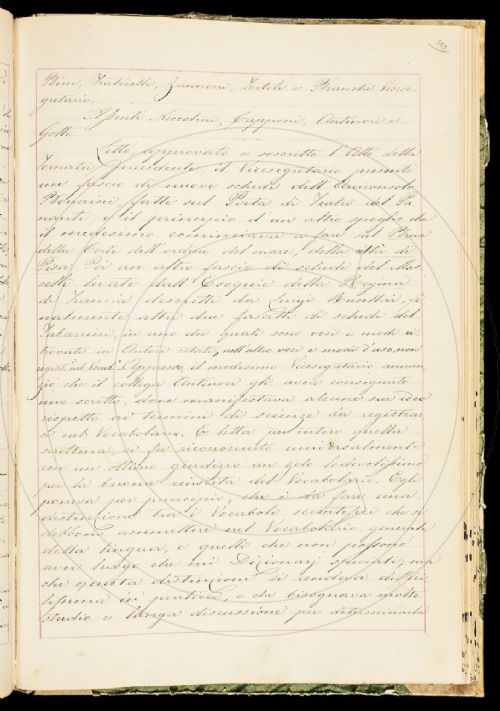 Bini, Fraticelli, Zannoni, Tortoli e Bianchi Vicese-
gretario.
Assenti Niccolini, Capponi, Antinori e
Gotti.
Letto, approvato e soscritto l'Atto della
Tornata precedente, il Vicesegretario presentò
un fascio di nuove schede dell'
fatte sul di Teatro del
e il principio d'un altro spoglio che
il medesimo cominciava a fare sul
della Corte dell'ordine del mare, della città di
Pisa. Poi un altro fascio di schede del
levate dall'Esequie della Regina
di Francia descritte da Luigi fi-
nalmente altri due fascetti di schede del
in uno dei quali sono voci e modi
trovati in Autori citati, nell'altro voci e modi d'uso, non
registr. nel Vocab. Appresso il medesimo Vicesegretario annun-
ziò che il collega Antinori gli avea consegnato
uno scritto, dove manifestava alcune sue idee
rispetto ai termini di scienze da registrar-
si nel Vocabolario. E letta per intero quella
scrittura, si fu riconosciuto universalmente
con un ottimo giudizio un zelo lodevolissimo
per la buona riuscita del Vocabolario. Egli
poneva per principio, che è da fare una
distinzione tra i Vocaboli scientifici che si
debbono ammettere nel Vocabolario generale
della lingua, e quelli che non possono
aver luogo che nei Dizionarj speciali; ma
che questa distinzione si rendeva diffici-
lissima in pratica, e che bisognava molto
studio e lunga discussione per determinarla